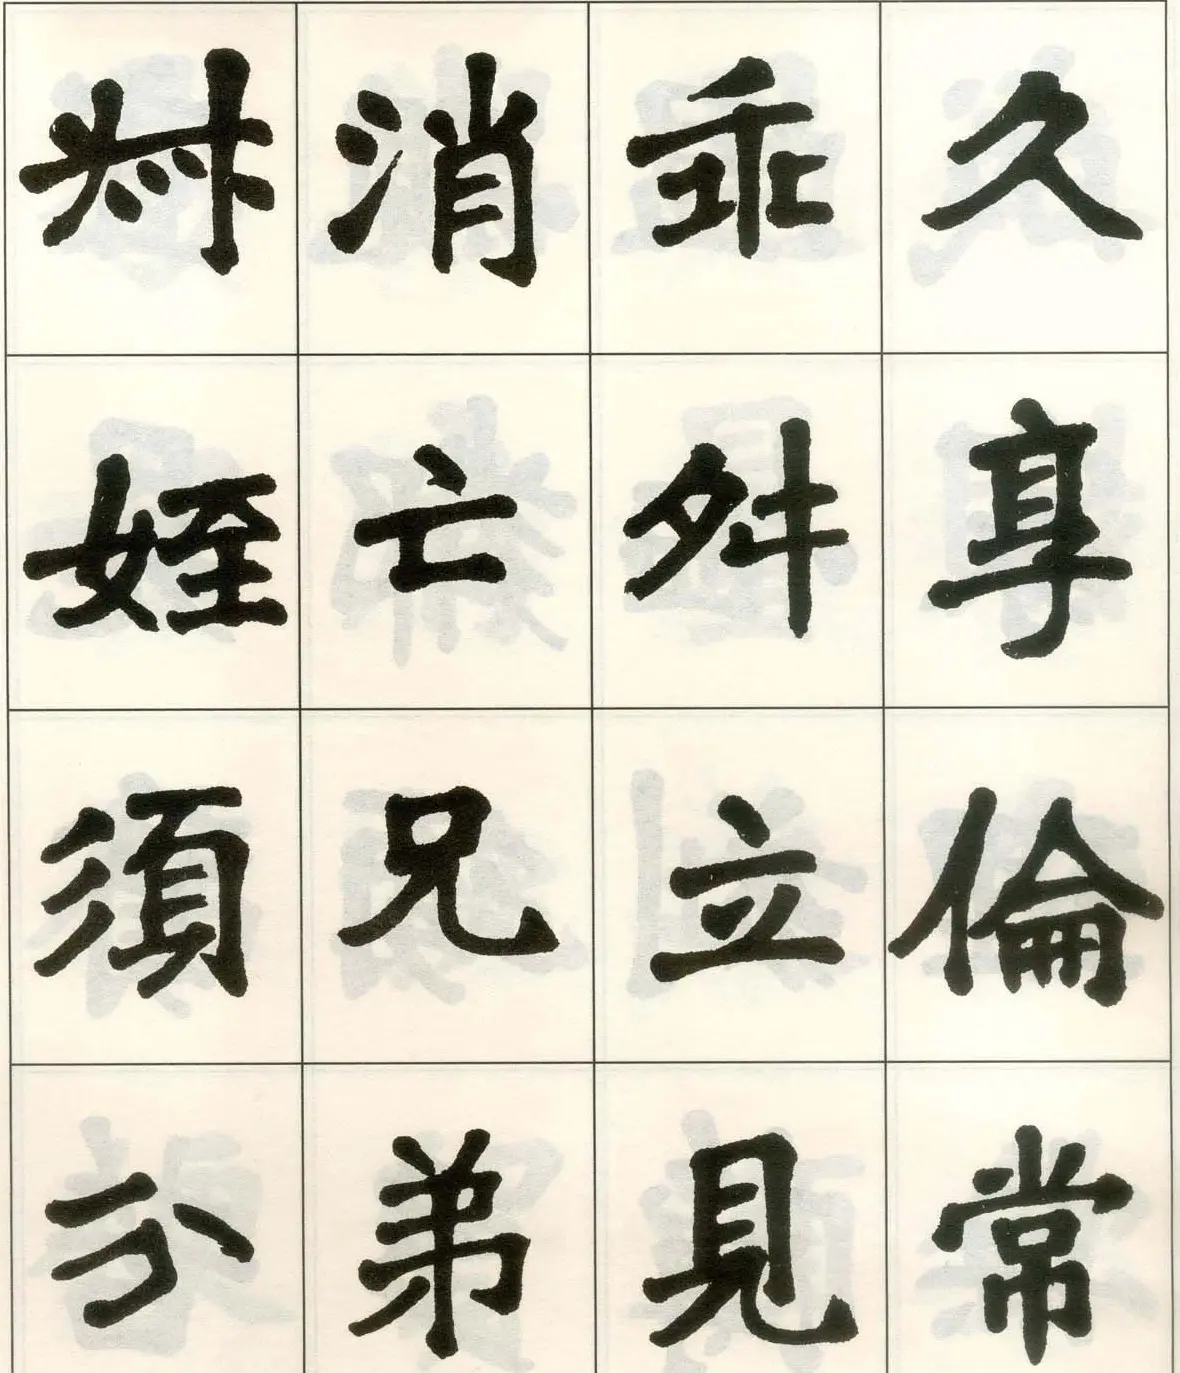 久享倫常
乖舛立見
消亡兄弟
叔姪須分